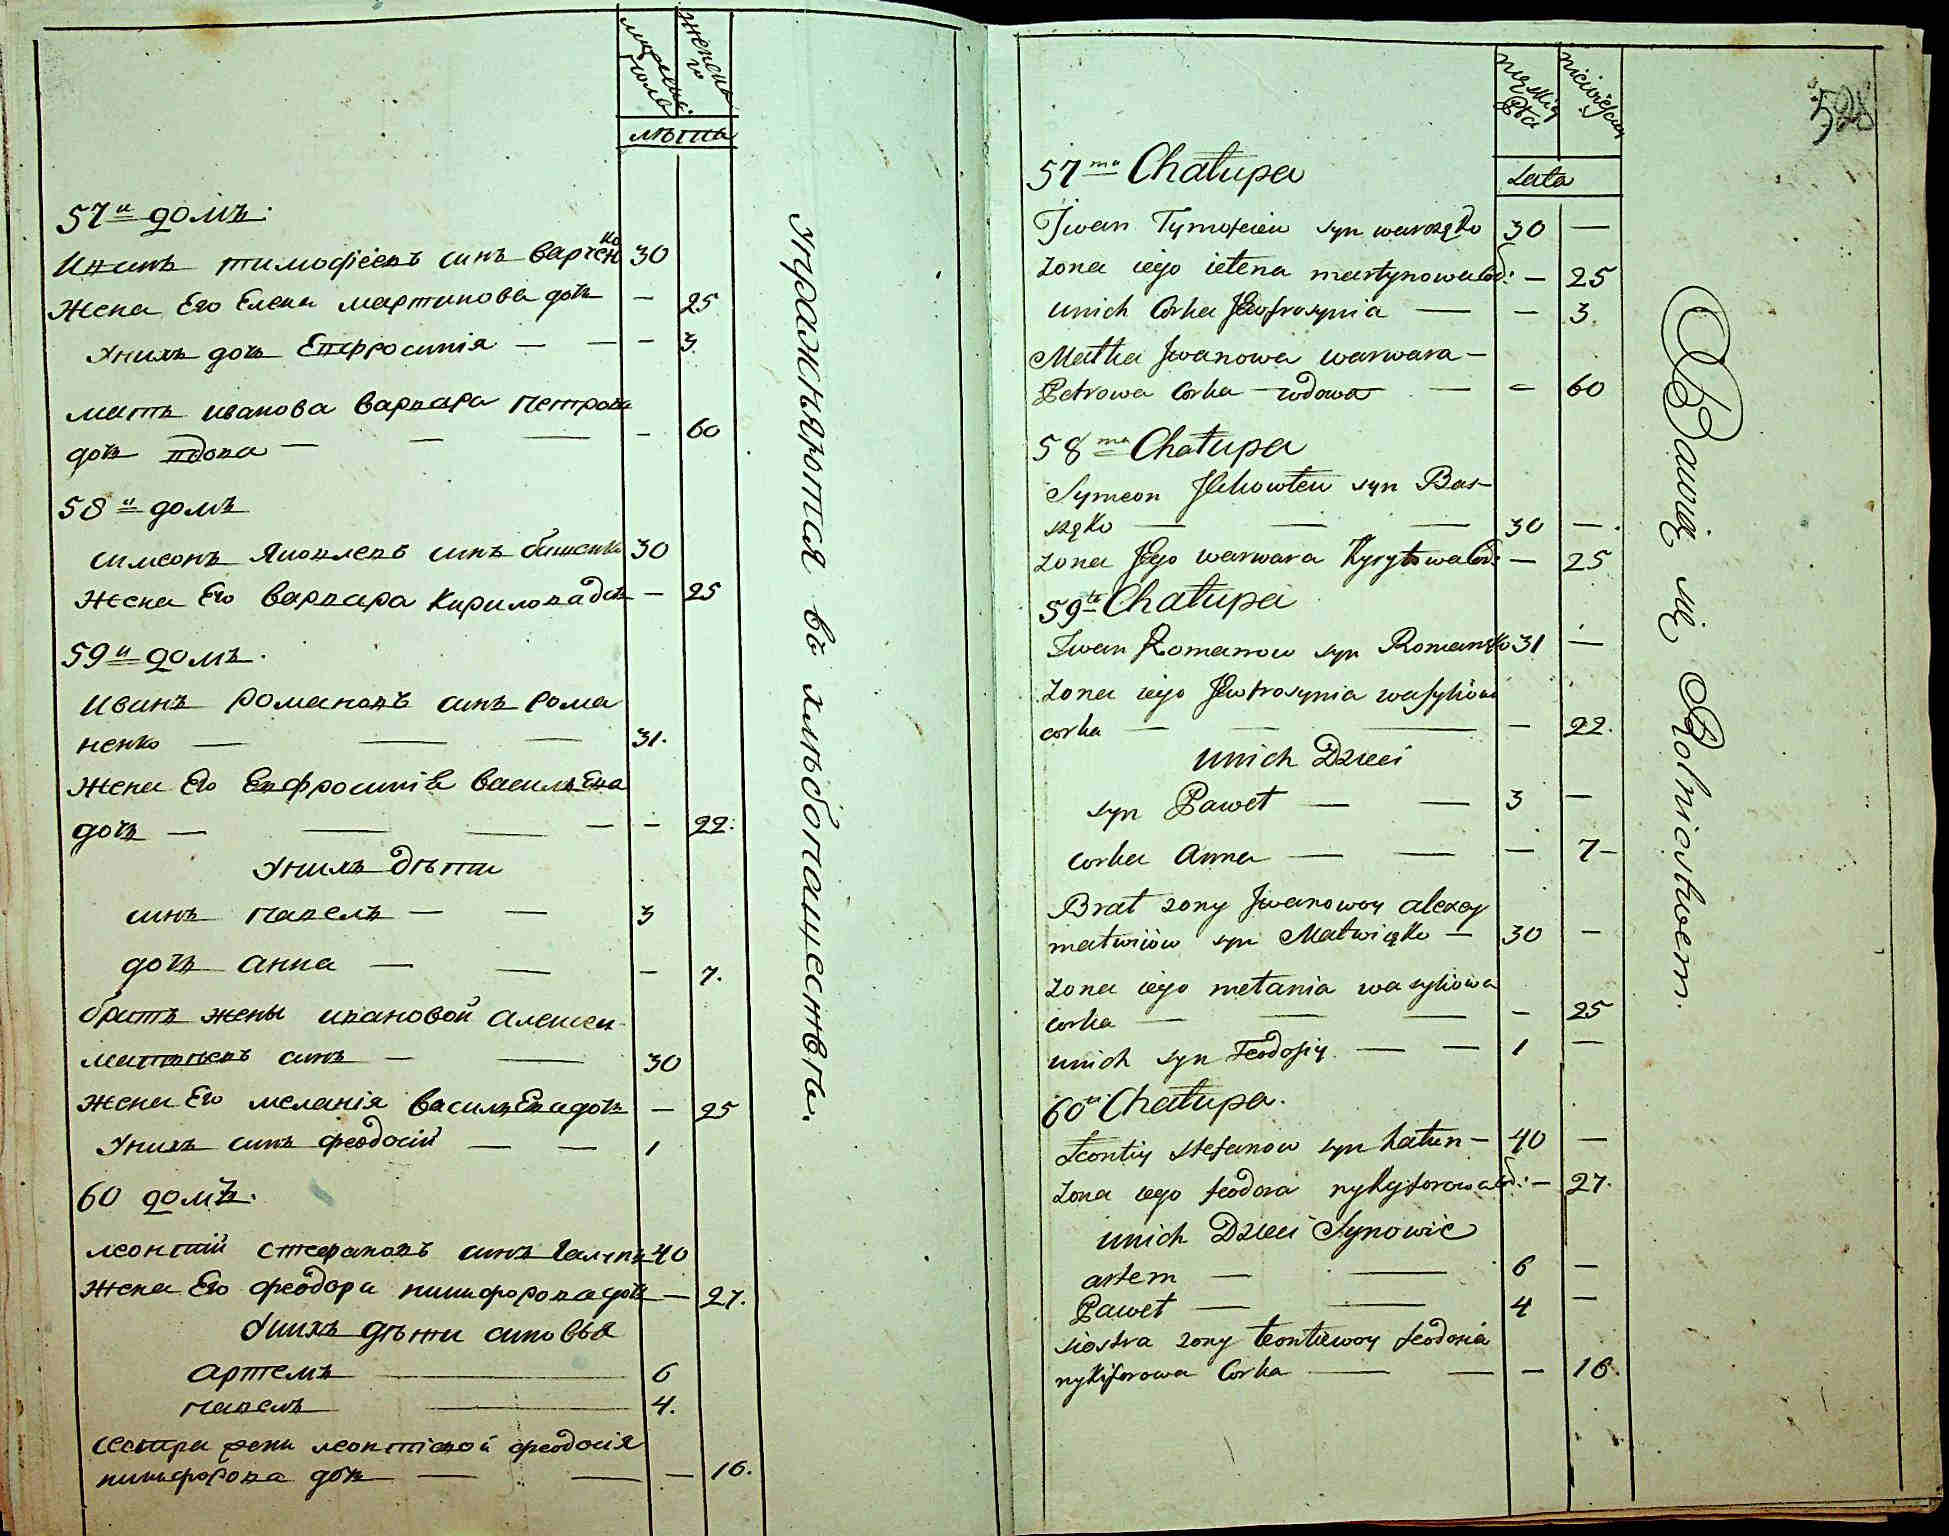 мужеска
полъ
женска
лѣта
57й домъ.
Иванъ тимофѣевъ синъ варченко 30
Жена Его Елена мартинова дочь — 25
Унихъ дочь Евфросинія — — — 3.
мать иванова варвара петрова
дочь вдова — — — — 60
58й домъ
симеонъ Яковлевъ синъ башенко 30
Жена Его варвара Кирилова дочь — 25
59й домъ.
Иванъ романовъ синъ рома
ненко — — — 31.
Жена Его Евфросинія василѣЕва
дочь — — — — — 22.
Унихъ дѣти
синъ павелъ — — 3
дочь анна — — — 7.
братъ жены ивановой алексей
матвѣевъ синъ — — 30
Жена Его меланія василѣЕва дочь — 25
Унихъ синъ феодосій — — 1
60 домъ.
леонтій стефановъ синъ 40
Жена Его феодора никифорова дочь — 27.
Унихъ дѣти синовья
артемъ — 6
павелъ — 4.
сестра жени леонтіевой феодосія
никифорова дочь — — — 16.
Упражняются въ хлѣбопашествѣ.
528
męskiey
Płci
niewieściey
Lata
57ma Chałupa
Jwan Tymofeiew syn warczęko 30 —
żona iego iełena martynowa cor: — 25
unich Corka Jewfrosynia — — 3.
Matka Jwanowa warwara —
Petrowa Corka wdowa — — 60
58ma Chałupa
Symeon Jakowlew syn Bas-
szęko — — — 30 — .
żona Jego warwara Kyryłowa Cor: — 25
59ta Chałupa
Jwan Romanow syn Romanęko 31 —
żona iego Jewfrosynia wasylowa
corka — — — — 22.
unich Dzieci
syn Paweł — — 3 —
corka anna — — — 7 —
Brat żony Jwanowoy alexey
matwiiow syn Matwięko — 30 —
żona iego mełania wasylowa
corka — — — — 25
unich syn Feodosiy — — 1 —
60ta Chałupa.
Leontiy stefanow syn hałun — 40 —
żona iego feodora nykyforowa cor: — 27.
unich Dzieci Synowie
artem — — 6 —
Paweł — — 4 —
siostra żony leontiewoy feodosia
nykiforowa Corka — — — 16.
Bawią się Rolnictwem.